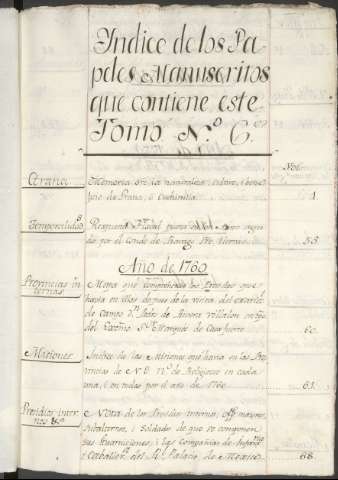 Yndice de los Pa
peles Manuscritos
que contiene este
Tomo N.º 6.
Fol.
Grana
Memoria de la naturaleza, cultivo, i benefi
cio de Grana, o Cochinilla
1
Temporalidad.s
Respuesta
por el Conde de
53
Año de 1760
Provincias in
ternas
Mapa que comprehende los Presidios que
havia en ellas despues de la visita del
de Campo D.n Pedro de Rivera Villalon en
del Marques de Casa fuerte
60
Misiones
Yndice de las Misiones que havia en las Pro
vincias de N. E. n.º de Religiosos en cada
una, i en todas por el año de 1760
61
Presidios inter
nos &.a
Nota de los Presidios internos, off.s mayores,
subalternos, i Soldados de que se componen
sus Guarniciones, i las Compañias de Infan.ria
i Caballer.a del R.l Palacio de Mexico
68